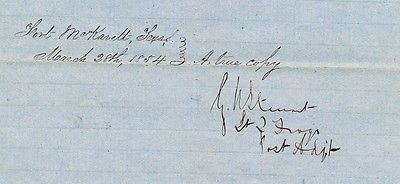 Fort McKavett, Texas,
March 28th, 1854 A true copy
G. H. Steuart
Lt 2 Drags
Post Adjt